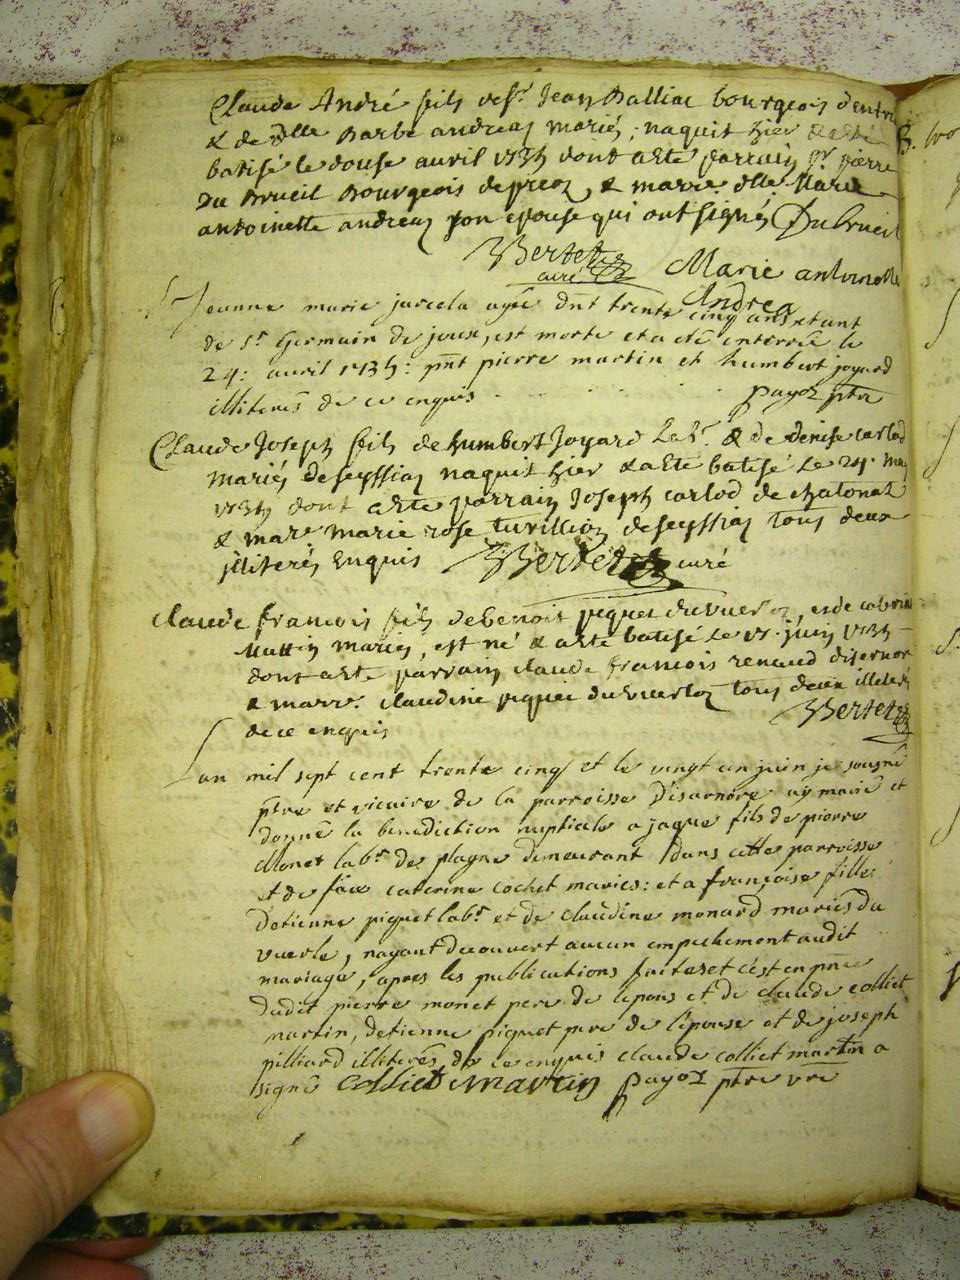 Claude André fils de Sr. Jean Balliac bourgeois d'entre
& de dlle Barbe andrea mariés; naquit hier & a eté
batisé le douse avril 1735 dont a eté parrain Sr. pierre
Du Brueil Bourgeois de & marre. dlle. Marie
antoinette andrea son epouse qui ont signés Dubrueil
Bertet curé Marie antoinette
Andrea
Jeanne marie jarcela agée dnt trente cinq ans etant
de St. Germain de joux, est morte et a eté enterrée le
24: avril 1735: pnt pierre martin et humbert joyard
illiterés de ce enquis
payoz ptre
Claude Joseph fils de humbert Joyard Labr. & de denise carlod
mariés de seyssia naquit hier & a eté batisé le 24. may
1735 dont a eté parrain Joseph carlod de chatona
& mare marie rose tuvillion de seyssia tous deux
illiterés Enquis Bertet curé
Claude francois fils de benoit piquet du vuerloz, et de
Muttin mariés, est né & a eté batisé le 15. juin 1735
dont a eté parrain claude francois renaud disernore
& marr. claudine piquet du vuerloz tous deux illiterés
de ce enquis Bertet
Lan mil sept cent trente cinq et le vingt un juin je sousné
ptre et vicaire de la parroisse Disarnore ay marié et
donné la benediction nuptiale a jaque fils de pierre
Monet labr. de plagne demeurant dans cette parroisse
et de caterine cochet mariés: et a françoise fille
detienne piquet labr. et de claudine monard mariés du
vuerle, nayant decouvert aucun empechement audit
mariage, apres les publications faites et cest en pnce
dudit pierre monet pere de lepous et de claude colliet
martin, detienne piquet pere de l'epouse et de joseph
pilliard illiterés de ce enquis claude colliet martin a
signé Colliet martin payoz ptre vre